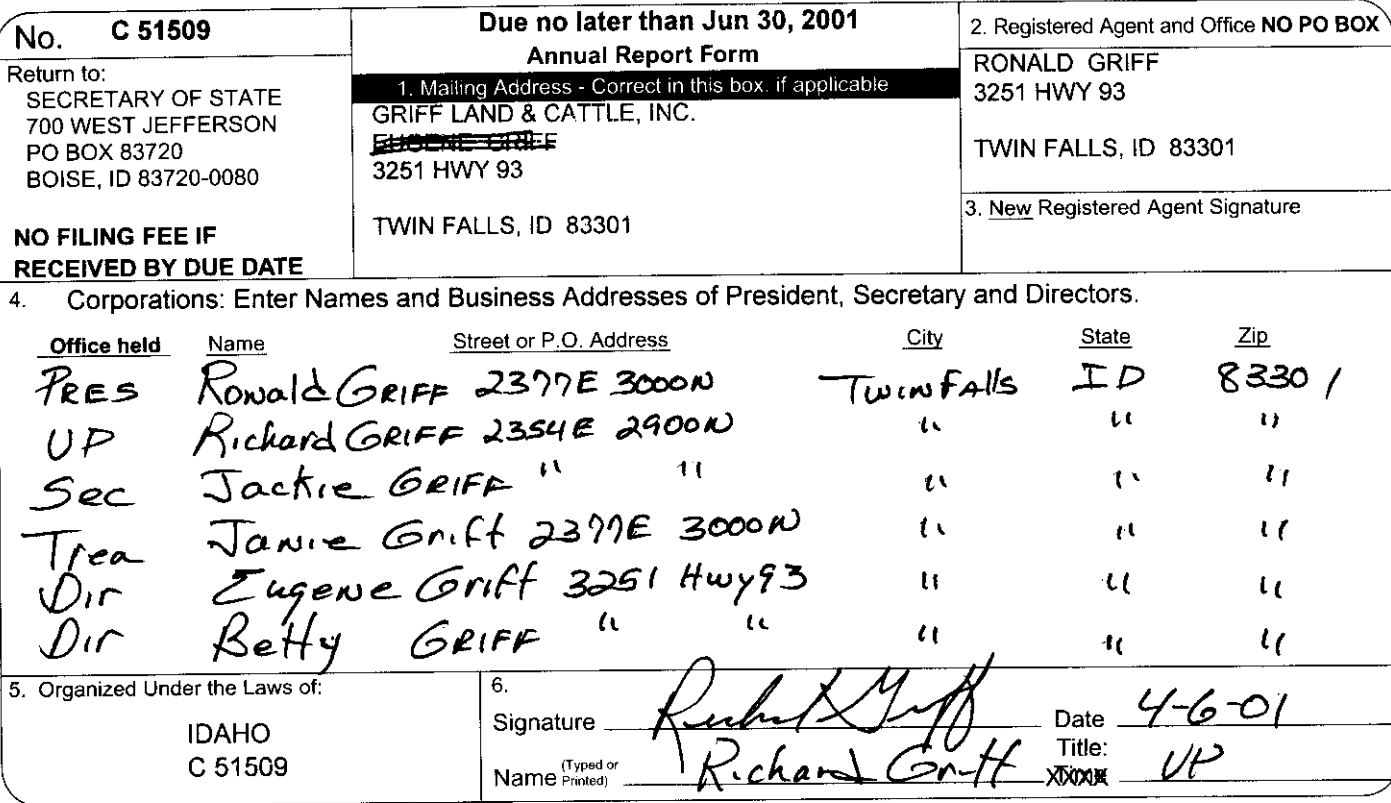 No. C 51509
Return to:
SECRETARY OF STATE
700 WEST JEFFERSON
PO BOX 83720
BOISE, ID 83720-0080
NO FILING FEE IF
RECEIVED BY DUE DATE
Due no later than Jun 30, 2001
Annual Report Form
1. Mailing Address - Correct in this box. if applicable
GRIFF LAND & CATTLE, INC.
EUGENE GRIFF
3251 HWY 93
TWIN FALLS, ID 83301
2. Registered Agent and Office NO PO BOX
RONALD GRIFF
3251 HWY 93
TWIN FALLS, ID 83301
3. New Registered Agent Signature
4. Corporations: Enter Names and Business Addresses of President, Secretary and Directors.
Office held Name Street or P.O. Address City State Zip
PRES Ronald GRIFF 2377E 3000N Twin Falls ID 83301
VP Richard GRIFF 2354E 2900N " " "
Sec Jackie GRIFF " " " " "
Trea Janie Griff 2377E 3000N " " "
Dir Eugene Griff 3251 Hwy 93 " " "
Dir Betty GRIFF " " " " "
5. Organized Under the Laws of:
IDAHO
C 51509
6.
Signature Richard Griff Date 4-6-01
Name (Typed or Printed) Richard Griff Title: VP